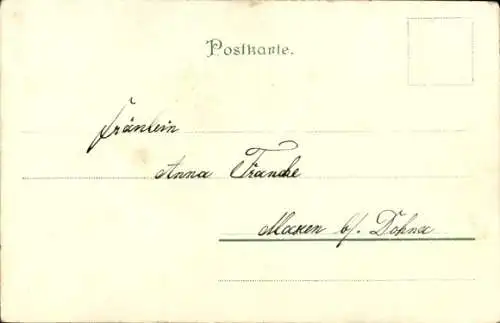 Postkarte.
Fräulein
Anna Francke
Maxen b/. Dohna